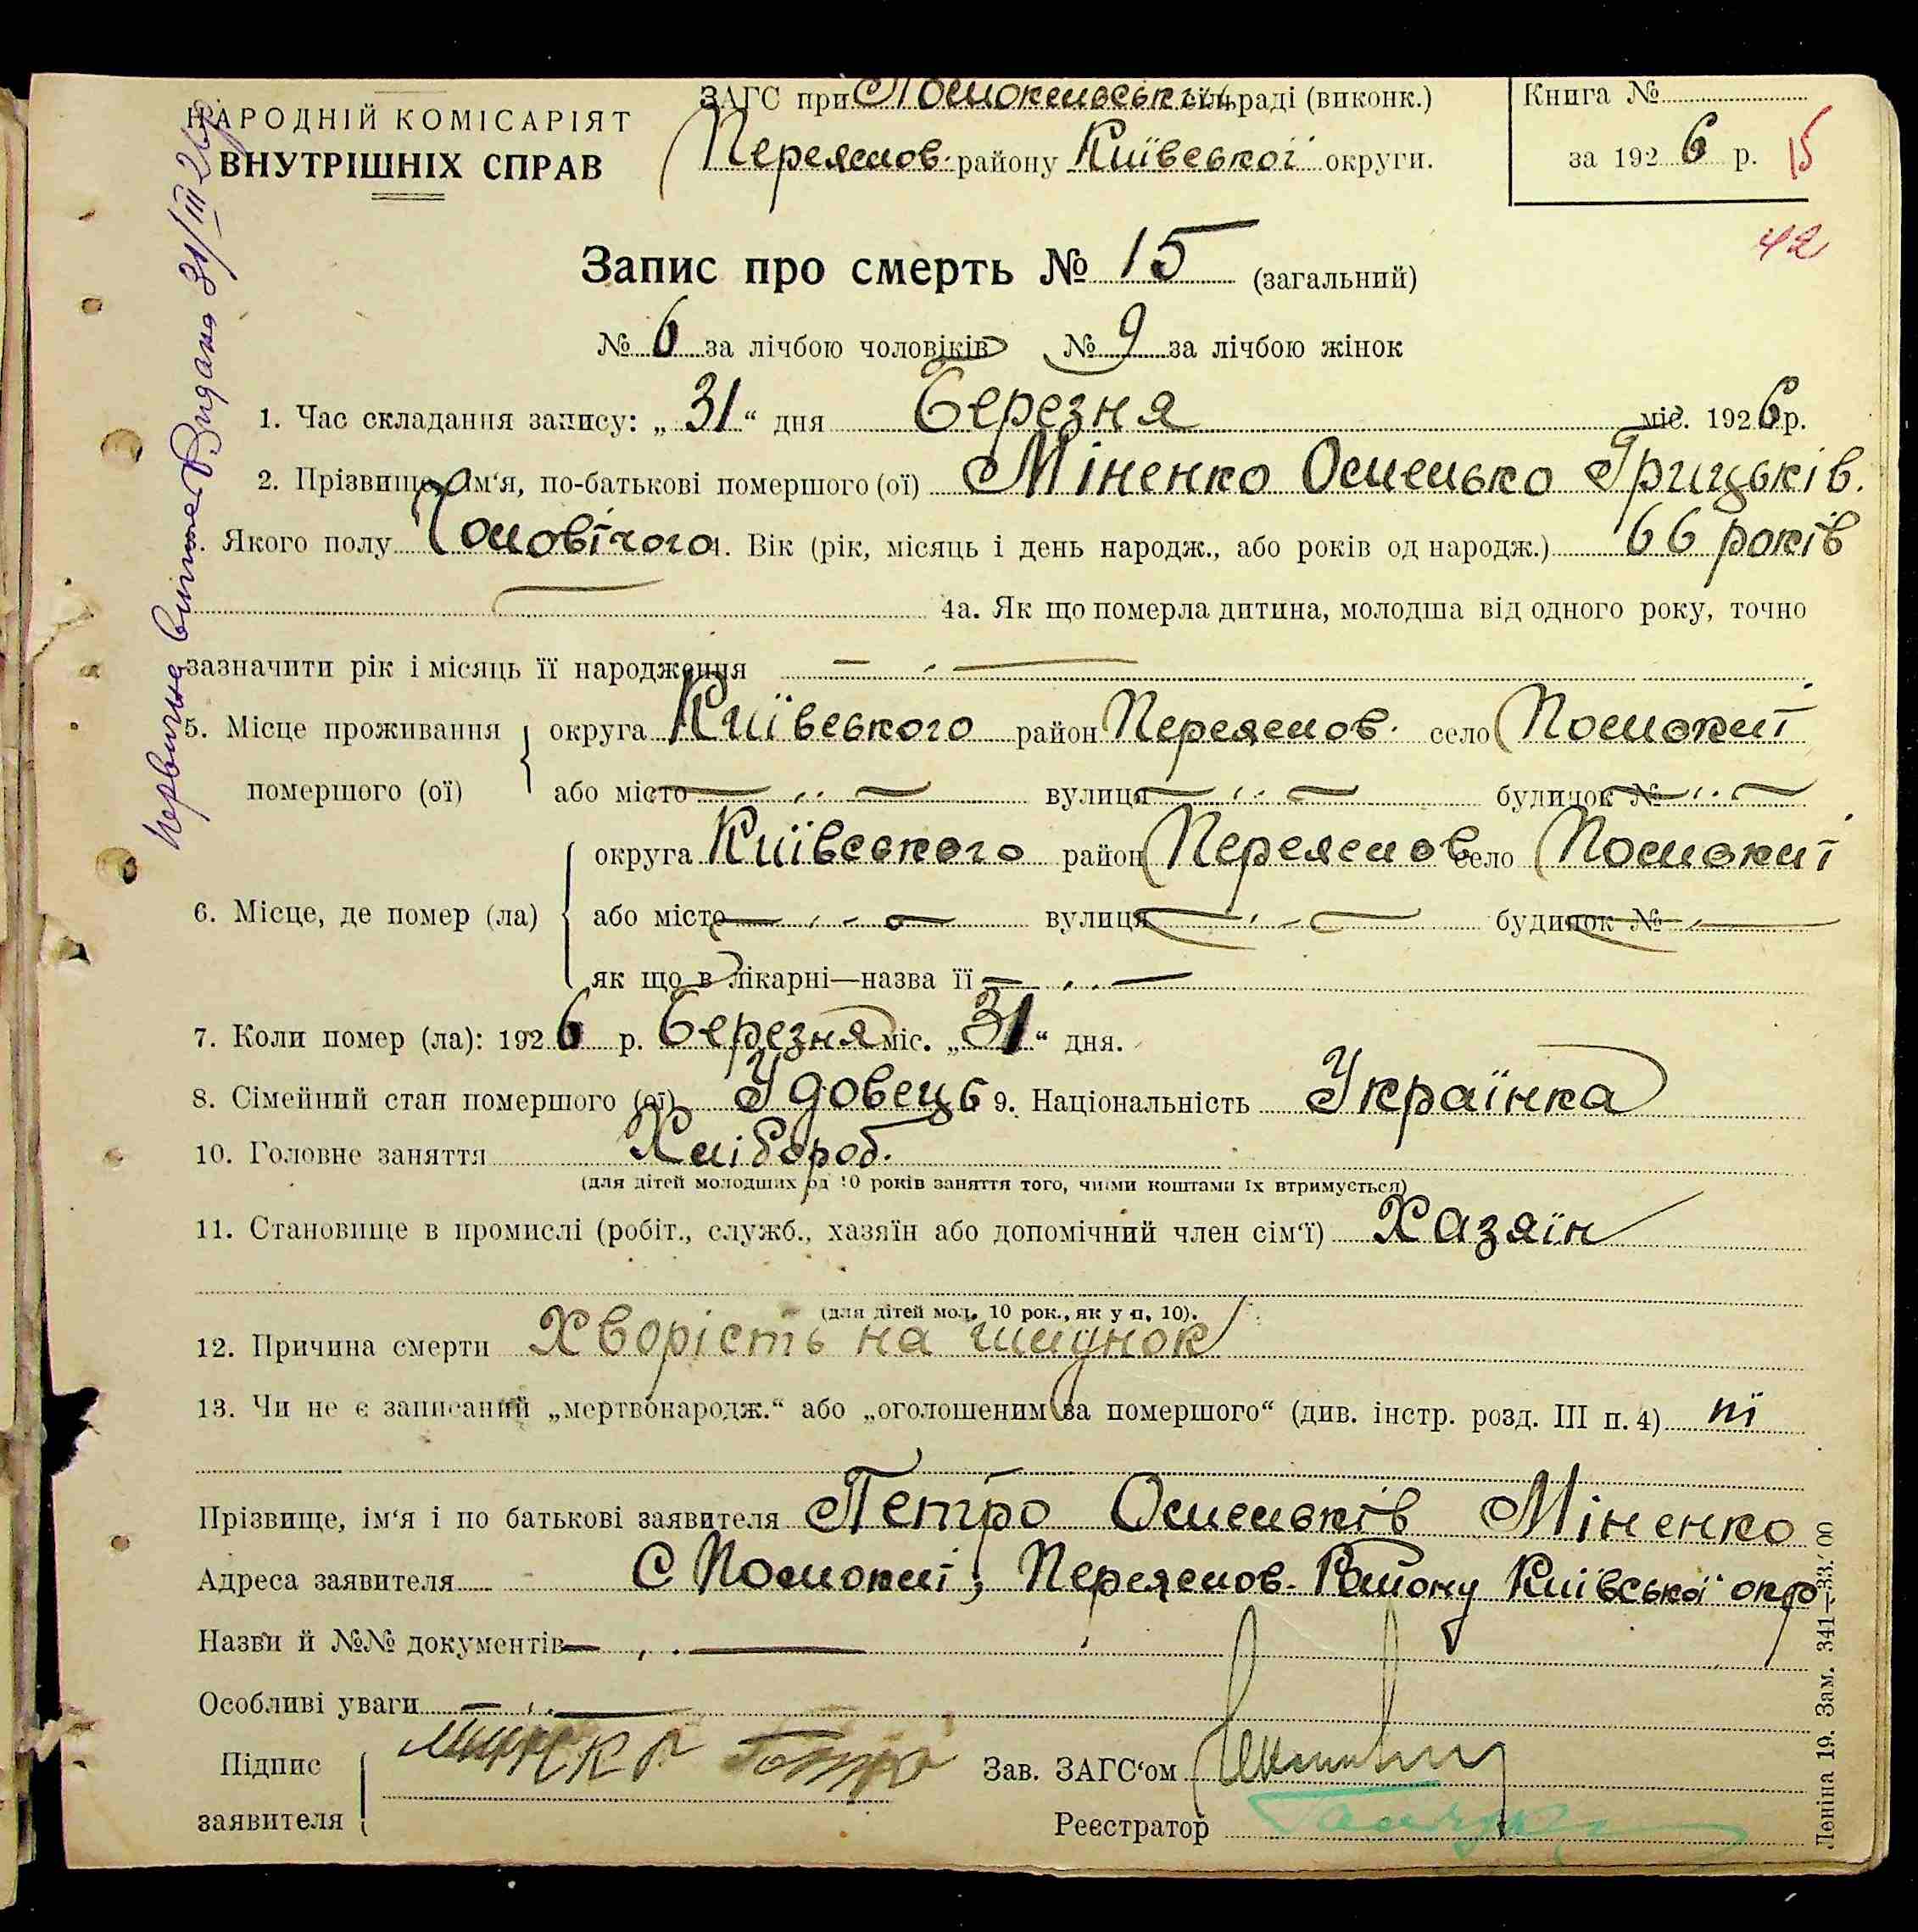 НАРОДНІЙ КОМІСАРІЯТ
ВНУТРІШНІХ СПРАВ
ЗАГС при Помокельськ. сільраді (виконк.)
Переяслов. району Київської округи.
Книга №
за 1926 р.
15
42
Запис про смерть № 15 (загальний)
№ 6 за лічбою чоловіків № 9 за лічбою жінок
1. Час складання запису: „31“ дня Березня міс. 1926 р.
2. Прізвище, ім'я, по-батькові помершого (ої) Міненко Омелько Грицьків.
3. Якого полу Чоловічого 4. Вік (рік, місяць і день народж., або років од народж.) 66 років
4а. Як що померла дитина, молодша від одного року, точно
зазначити рік і місяць її народження
5. Місце проживання помершого (ої) округа Київського район Переяслов. село Помоклі
або місто вулиця будинок №
6. Місце, де помер (ла) округа Київського район Переяслов село Помоклі
або місто вулиця будинок №
як що в лікарні—назва її
7. Коли помер (ла): 1926 р. Березня міс. „31“ дня.
8. Сімейний стан помершого (ої) Удовець 9. Національність Українка
10. Головне заняття Хлібороб.
(для дітей молодших од 10 років заняття того, чиїми коштами їх втримується)
11. Становище в промислі (робіт., служб., хазяїн або допомічний член сім'ї) Хазяїн
(для дітей мол. 10 рок., як у п. 10).
12. Причина смерти Хворість на шлунок
13. Чи не є записаний „мертвонародж.“ або „оголошеним за помершого“ (див. інстр. розд. III п. 4) ні
Прізвище, ім'я і по батькові заявителя Петро Омельків Міненко
Адреса заявителя С Помоклі, Переяслов. Району Київської окр
Назви й №№ документів
Особливі уваги
Підпис заявителя Петро
Зав. ЗАГС'ом
Реєстратор
Первична виписъ Видана 31/III 26р
Леніна 19. Зам. 341—33.′00